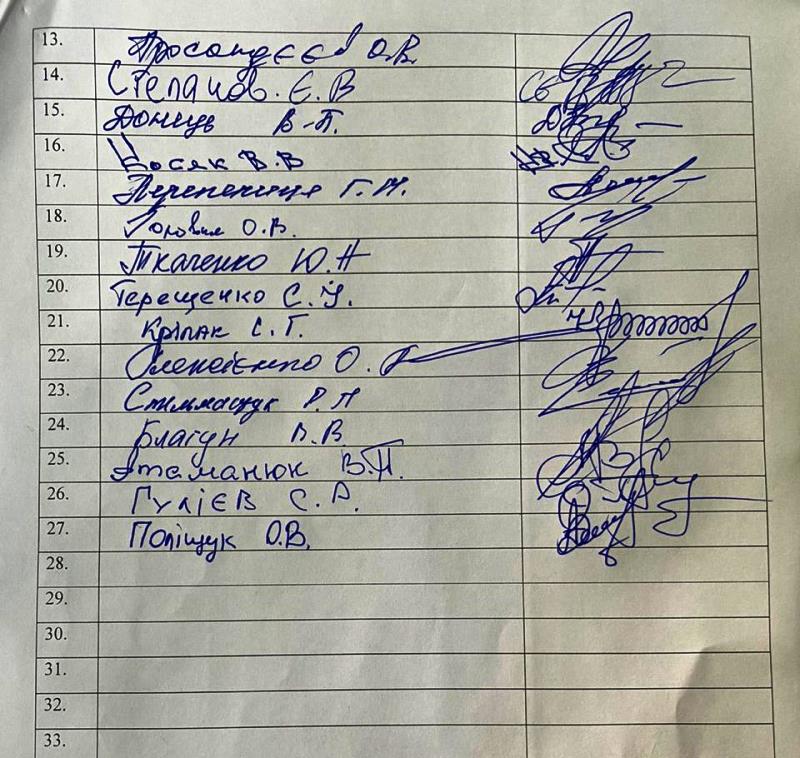 13. Просандєєв О.В.
14. Степанов. Є.В
15. Донець В.П.
16. Носяк В.В
17. Перепелиця Г.М.
18. О.В.
19. Ткаченко Ю.Н
20. Терещенко С.У.
21. Кріпак С.Г.
22. О.
23. Р.П
24. Благун В.В
25. Атаманюк В.П.
26. Гулієв С.А.
27. Поліщук О.В.
28.
29.
30.
31.
32.
33.